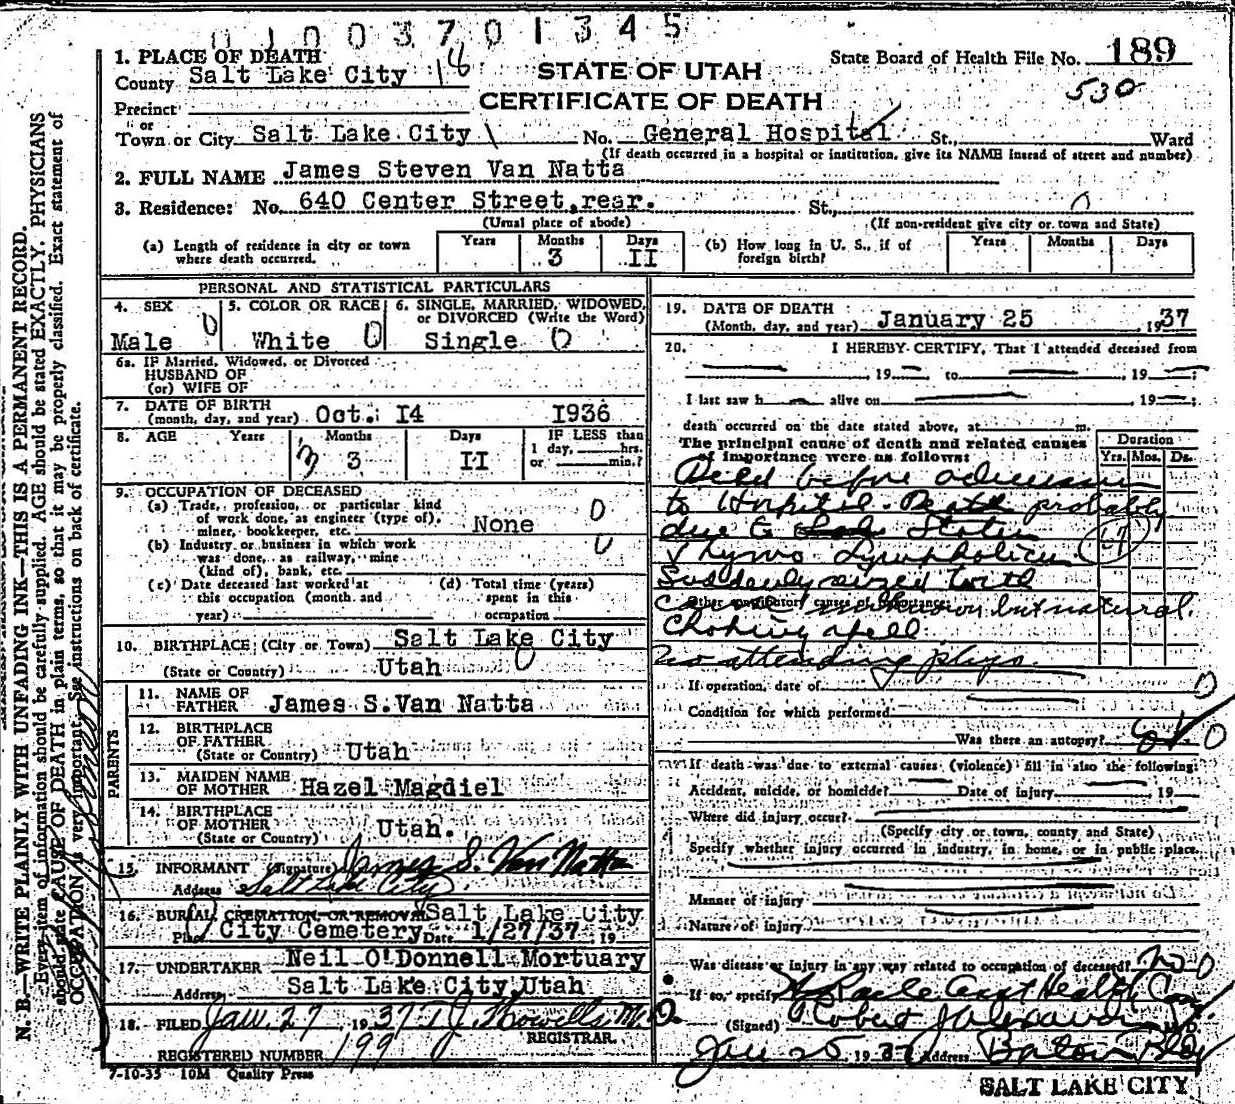 0 1 0 0 3 7 0 1 3 4 5
1. PLACE OF DEATH
County Salt Lake City 18
Precinct
or
Town or City Salt Lake City No. General Hospital St., Ward
(If death occurred in a hospital or institution, give its NAME instead of street and number)
STATE OF UTAH
CERTIFICATE OF DEATH
State Board of Health File No. 189
530
2. FULL NAME James Steven Van Natta
3. Residence: No. 640 Center Street, rear. St.,
(Usual place of abode) (If non-resident give city or town and State)
(a) Length of residence in city or town where death occurred. Years Months 3 Days II
(b) How long in U. S., if of foreign birth? Years Months Days
PERSONAL AND STATISTICAL PARTICULARS
4. SEX Male 0
5. COLOR OR RACE White 0
6. SINGLE, MARRIED, WIDOWED, or DIVORCED (Write the Word) Single 0
6a. IF Married, Widowed, or Divorced
HUSBAND OF
(or) WIFE OF
7. DATE OF BIRTH
(month, day, and year) Oct. I4 I936
8. AGE Years Months 3 Days II IF LESS than
1 day, hrs.
or min.?
9. OCCUPATION OF DECEASED
(a) Trade, profession, or particular kind
of work done, as engineer (type of),
miner, bookkeeper, etc. None 0
(b) Industry or business in which work 0
was done, as railway, mine
(kind of), bank, etc.
(c) Date deceased last worked at
this occupation (month and
year)
(d) Total time (years)
spent in this
occupation
10. BIRTHPLACE (City or Town) Salt Lake City
(State or Country) Utah 0
PARENTS
11. NAME OF
FATHER James S. Van Natta
12. BIRTHPLACE
OF FATHER
(State or Country) Utah
13. MAIDEN NAME
OF MOTHER Hazel Magdiel
14. BIRTHPLACE
OF MOTHER
(State or Country) Utah.
15. INFORMANT (Signature) James S. Van Natta
Address Salt Lake City
16. BURIAL, CREMATION, OR REMOVAL Salt Lake City
Place City Cemetery Date 1/27/37 19
17. UNDERTAKER Neil O'Donnell Mortuary
Address Salt Lake City, Utah
18. FILED Jan. 27 1937 T J Howells M.D.
REGISTRAR.
REGISTERED NUMBER 199
7-10-35 10M Quality Press
19. DATE OF DEATH
(Month, day, and year) January 25 1937
20. I HEREBY CERTIFY, That I attended deceased from
19 to , 19 ;
I last saw h alive on 19 ;
death occurred on the date stated above, at m.
The principal cause of death and related causes
of importance were as follows:
Duration
Yrs. Mos. Ds.
Died before admission
to Hospital. Death probably
due to Status
Thymo Lymphaticus
Suddenly seized with
Other contributory causes of importance
but natural
Choking spell
no attending phys.
If operation, date of 0
Condition for which performed
Was there an autopsy? 0
If death was due to external causes (violence) fill in also the following:
Accident, suicide, or homicide? Date of injury 19
Where did injury occur?
(Specify city or town, county and State)
Specify whether injury occurred in industry, in home, or in public place.
Manner of injury
Nature of injury
Was disease or injury in any way related to occupation of deceased? No 0
If so, specify Health
(Signed) Robert J Alexander M. D.
Jan 25 1937 Address Boston Bldg
SALT LAKE CITY
N. B.—WRITE PLAINLY WITH UNFADING INK—THIS IS A PERMANENT RECORD.
Every item of information should be carefully supplied. AGE should be stated EXACTLY. PHYSICIANS
should state CAUSE OF DEATH in plain terms, so that it may be properly classified. Exact statement of
OCCUPATION is very important. See instructions on back of certificate.